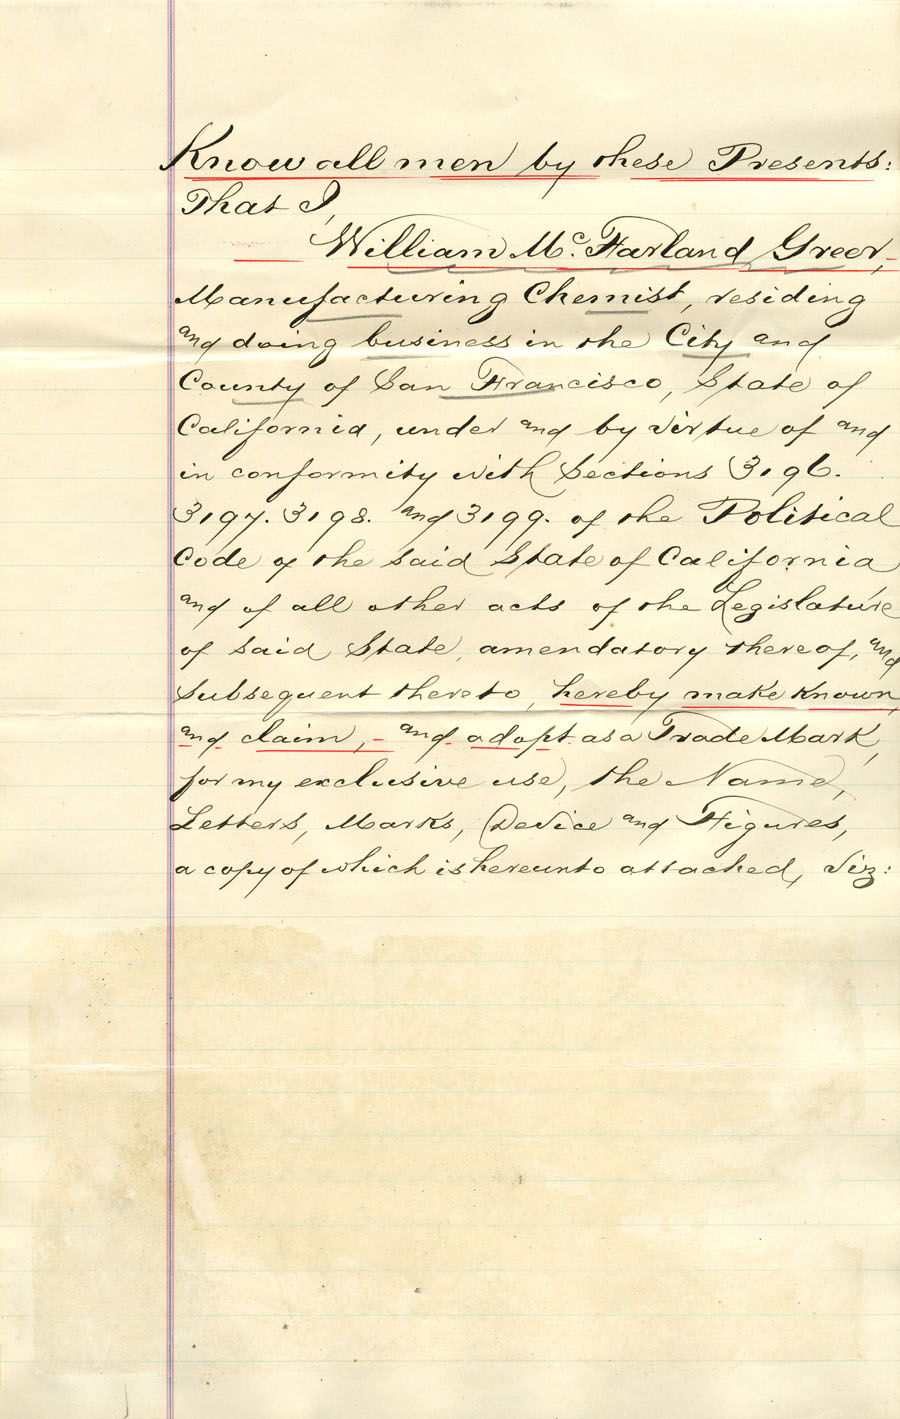 Know all men by these Presents:
That I,
William Mc. Farland Greer,-
Manufacturing Chemist, residing
and doing business in the City and
County of San Francisco, State of
California, under and by virtue of and
in conformity with Sections 3196.
3197. 3198. and 3199. of the Political
Code of the said State of California
and of all other acts of the Legislature
of said State, amendatory thereof, and
subsequent thereto, hereby make known,
and claim,- and adopt as a Trade Mark,
for my exclusive use, the Name,
Letters, Marks, Device and Figures,
a copy of which is hereunto attached, viz: